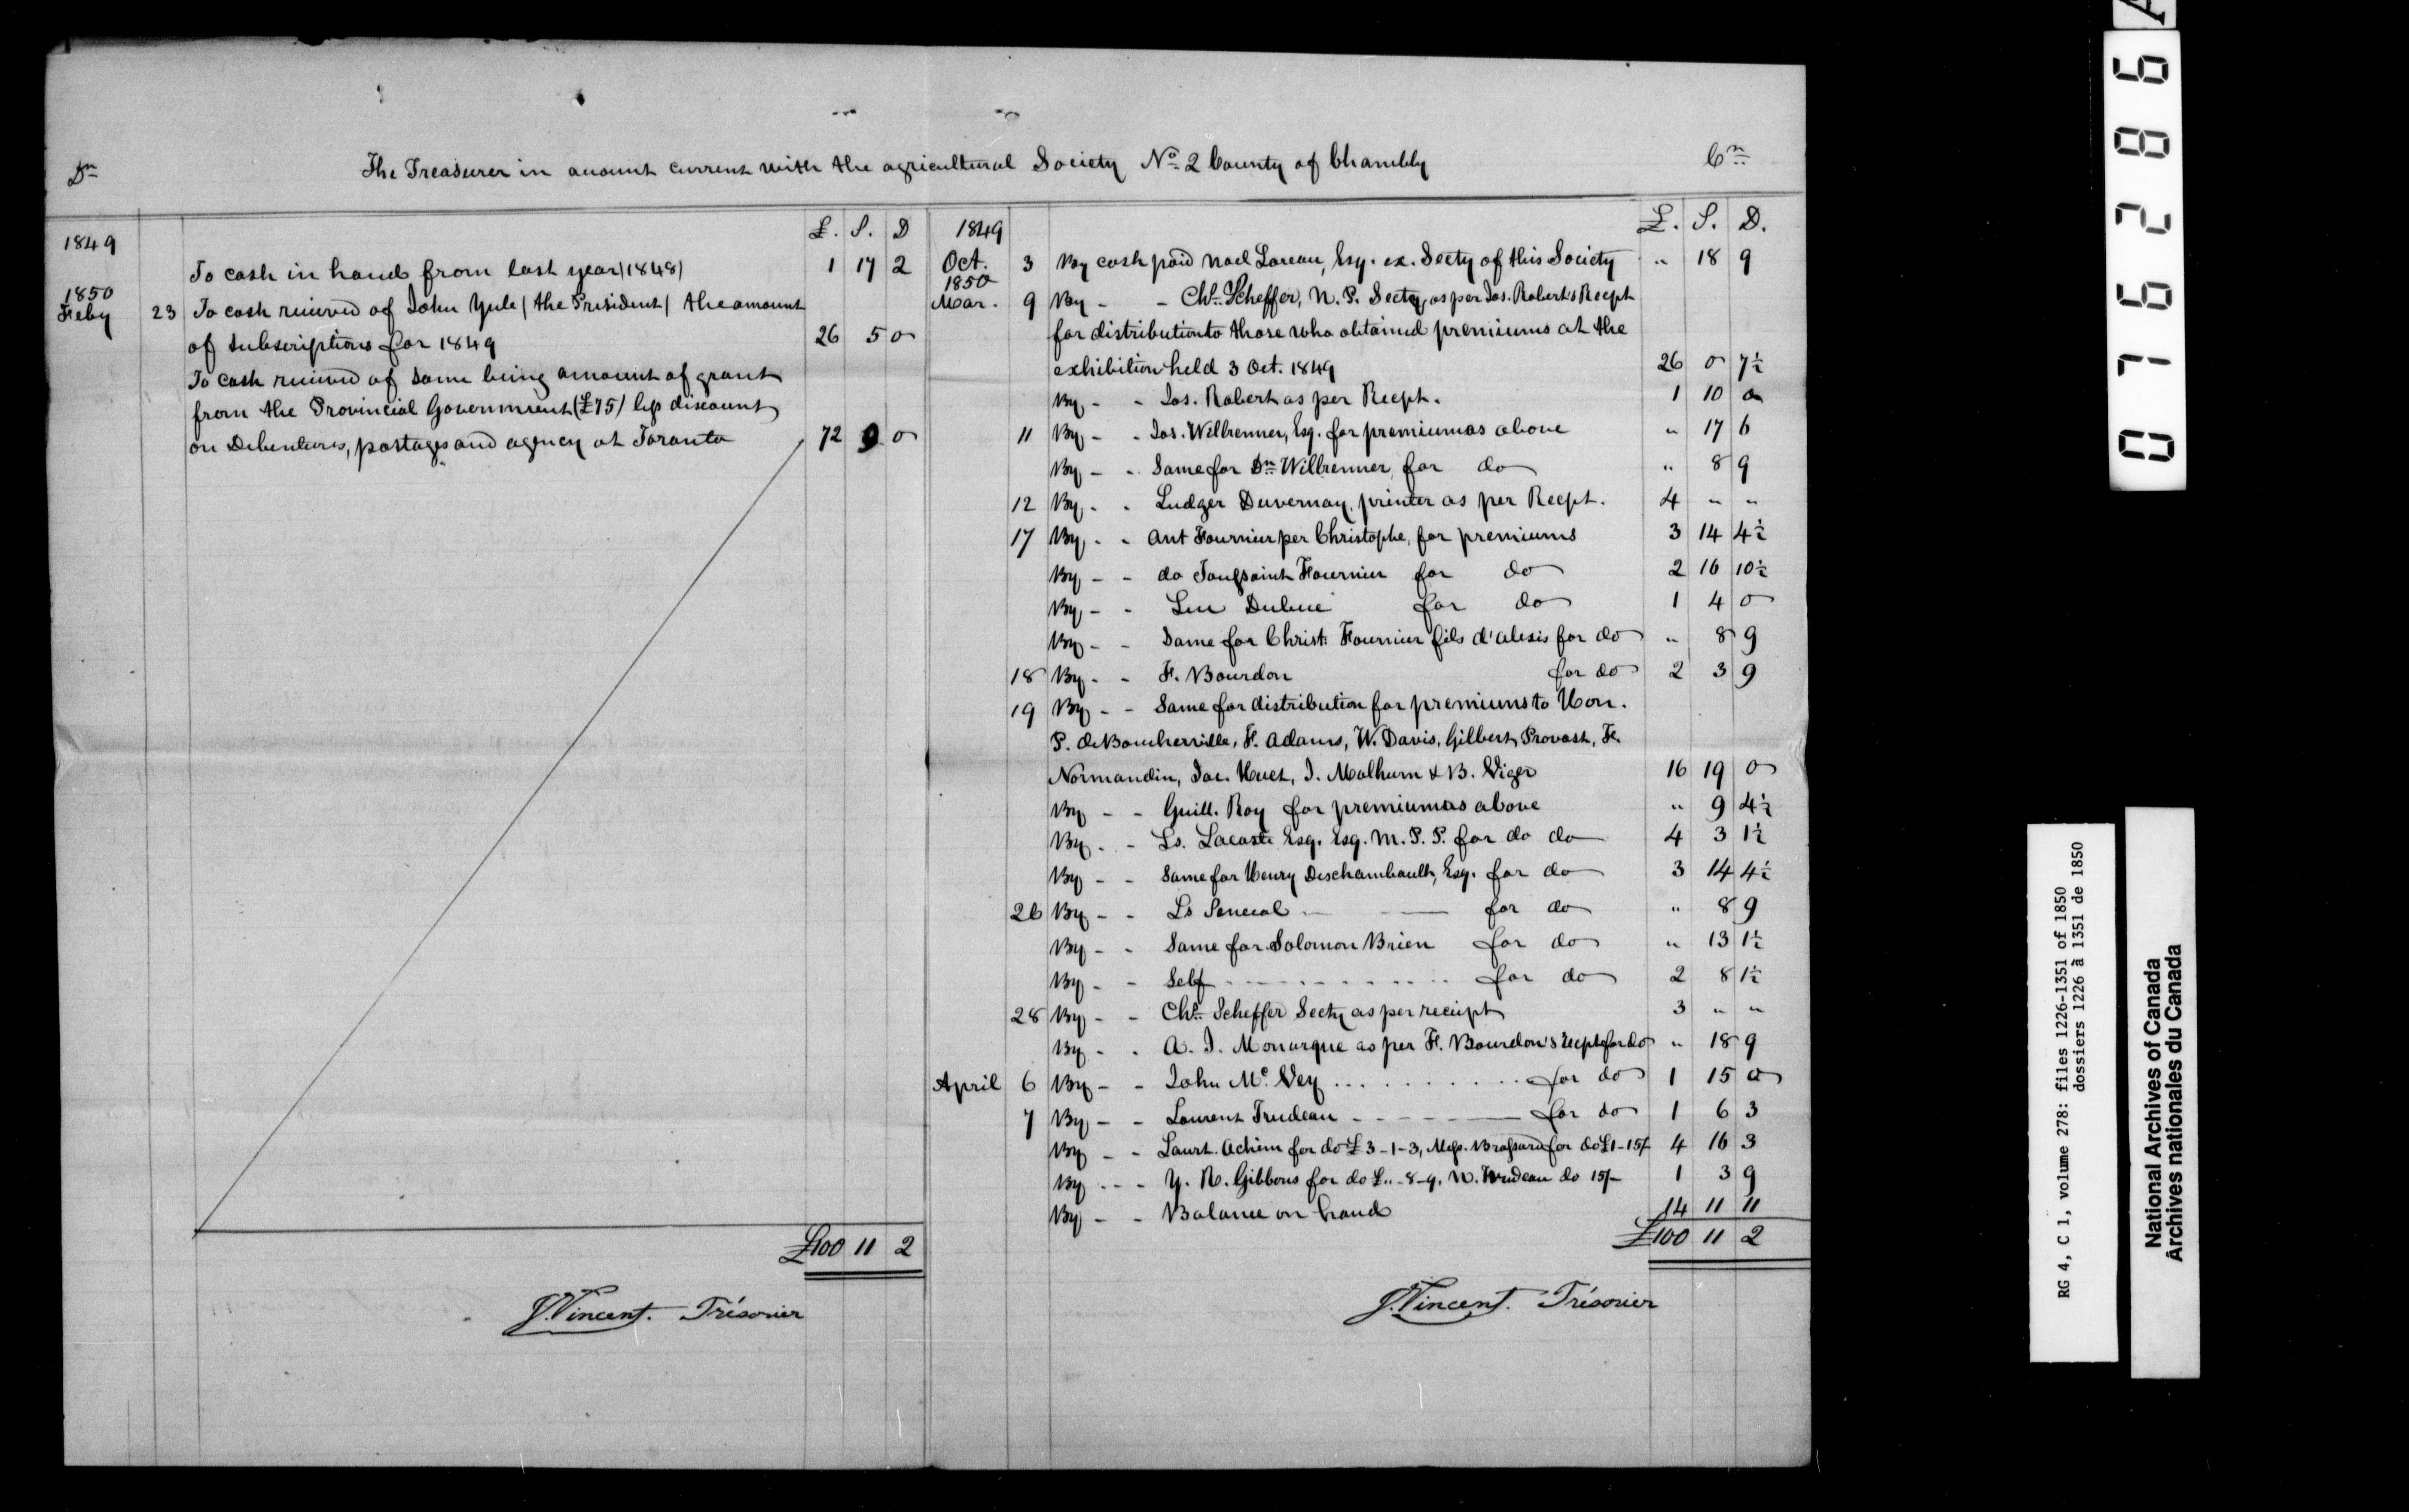 Dr The Treasurer in account current with the agricultural Society No 2 County of Chambly Cr
£. S. D
1849
To cash in hand from last year (1848) 1 17 2
1850
Feby 23 To cash received of John Yule (the President) the amount
of subscriptions for 1849 26 5 0
To cash received of same being amount of grant
from the Provincial Government (£75) less discount
on Debentures, postages and agency at Toronto 72 9 0
£100 11 2
J. Vincent. Trésorier
£. S. D.
1849
Oct. 3 By cash paid Noel Loreau, Esq. ex. Secty of this Society " 18 9
1850
Mar. 9 By - - Chs. Scheffer, N. P. Secty, as per Jos. Robert's Recpt
for distribution to those who obtained premiums at the
exhibition held 3 Oct. 1849 26 0 7½
By - - Jos. Robert as per Recpt. 1 10 0
11 By - - Jos. Willrenner, Esq. for premium as above " 17 6
By - - Same for Dr Willrenner, for do " 8 9
12 By - - Ludger Duvernay, printer as per Recpt. 4 " "
17 By - - Ant Fournier per Christophe, for premiums 3 14 4½
By - - do Toussaint Fournier for do 2 16 10½
By - - Luc Dubuc for do 1 4 0
By - - Same for Christ. Fournier fils d'alexis for do " 8 9
18 By - - F. Bourdon for do 2 3 9
19 By - - Same for distribution for premiums to Hon.
P. deBoucherville, F. Adams, W. Davis, Gilbert Provost, F.
Normandin, Jac. Huet, J. Malhurn & B. Viger 16 19 0
By - - Guill. Roy for premium as above " 9 4½
By - - Ls. Lacoste Esq. Esq. M. P. P. for do do 4 3 1½
By - - Same for Henry Deschambault, Esq. for do 3 14 4½
26 By - - Ls Senecal - for do " 8 9
By - - Same for Solomon Brien for do " 13 1½
By - - Self - - - - - for do 2 8 1½
28 By - - Chs. Scheffer Secty as per receipt 3 " "
By - - A. J. Monarque as per F. Bourdon's recpt for do " 18 9
April 6 By - - John Mc Vey . . . . . for do 1 15 0
7 By - - Laurent Trudeau - - - - for do 1 6 3
By - - Laurt. Achim for do £3-1-3, Mess. Brassard for do £1-15/- 4 16 3
By - - - Y. R. Gibbons for do £"-8-9. N. Trudeau do 15/- 1 3 9
By - - Balance on hand 14 11 11
£100 11 2
J. Vincent. Trésorier
076286
RG 4, C 1, volume 278: files 1226-1351 of 1850
dossiers 1226 à 1351 de 1850
National Archives of Canada
Archives nationales du Canada